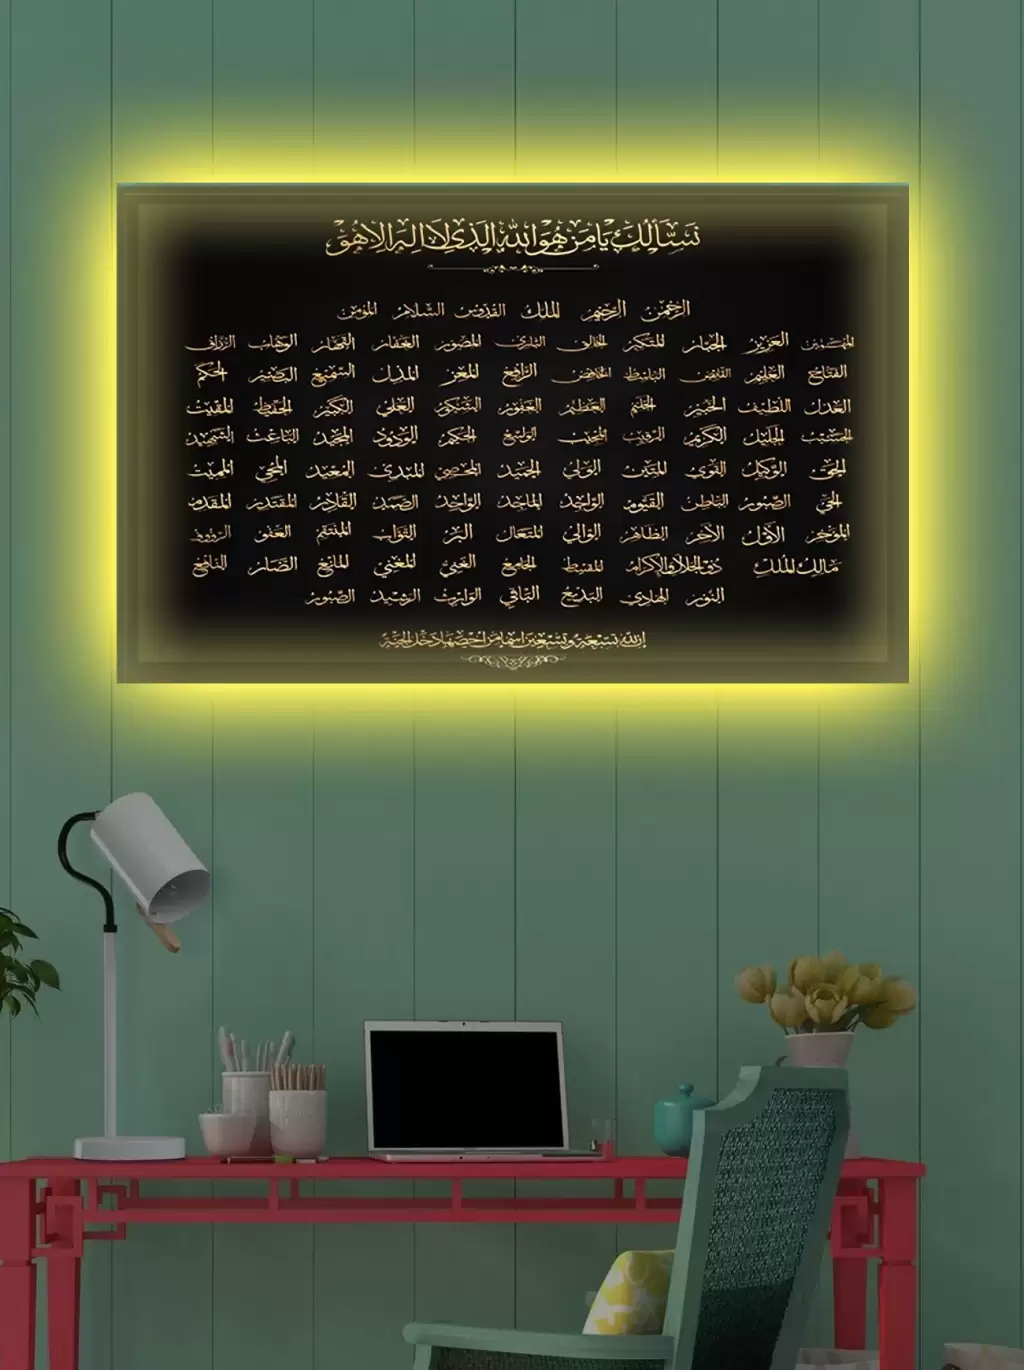 نسألك يا من هو الله الذي لا اله الا هو
الرحمن الرحيم الملك القدوس السلام المؤمن
المهيمن العزيز الجبار المتكبر الخالق البارئ المصور الغفار القهار الوهاب الرزاق
الفتاح العليم القابض الباسط الخافض الرافع المعز المذل السميع البصير الحكم
العدل اللطيف الخبير الحليم العظيم الغفور الشكور العلي الكبير الحفيظ المقيت
الحسيب الجليل الكريم الرقيب المجيب الواسع الحكيم الودود المجيد الباعث الشهيد
الحق الوكيل القوي المتين الولي الحميد المحصي المبدئ المعيد المحيي المميت
الحي الصبور الباطن القيوم الواجد الماجد الواحد الصمد القادر المقتدر المقدم
المؤخر الأول الآخر الظاهر الوالي المتعال البر التواب المنتقم العفو الرؤوف
مالك الملك ذو الجلال والإكرام المقسط الجامع الغني المغني المانع الضار النافع
النور الهادي البديع الباقي الوارث الرشيد الصبور
ان لله تسعة وتسعين اسما من احصاها دخل الجنة